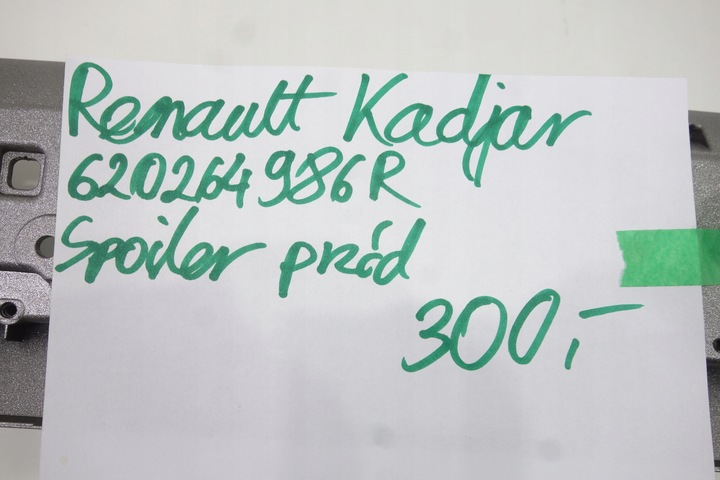 Renault Kadjar
620264986R
Spoiler przód
300,-